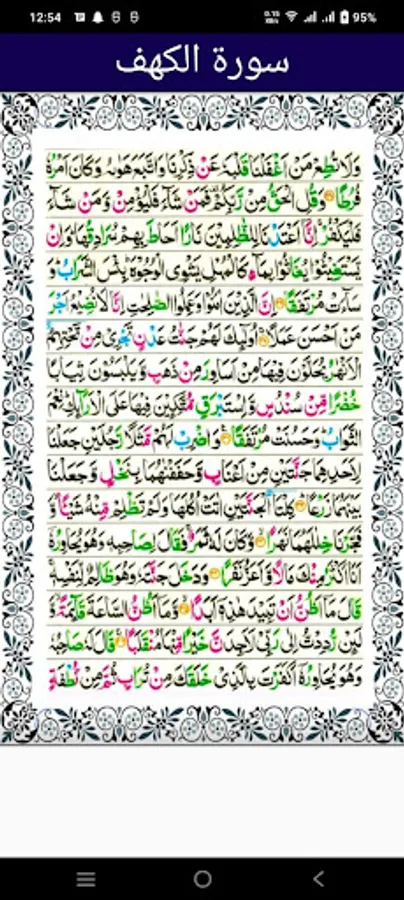 12:54
95%
سورة الكهف
وَلَا تُطِعْ مَنْ اَغْفَلْنَا قَلْبَهٗ عَنْ ذِكْرِنَا وَاتَّبَعَ هَوٰىهُ وَكَانَ اَمْرُهٗ
فُرُطًا وَقُلِ الْحَقُّ مِنْ رَّبِّكُمْ فَمَنْ شَآءَ فَلْيُؤْمِنْ وَّمَنْ شَآءَ
فَلْيَكْفُرْ اِنَّا اَعْتَدْنَا لِلظّٰلِمِيْنَ نَارًا اَحَاطَ بِهِمْ سُرَادِقُهَا وَاِنْ
يَّسْتَغِيْثُوْا يُغَاثُوْا بِمَآءٍ كَالْمُهْلِ يَشْوِى الْوُجُوْهَ بِئْسَ الشَّرَابُ وَ
سَآءَتْ مُرْتَفَقًا اِنَّ الَّذِيْنَ اٰمَنُوْا وَعَمِلُوا الصّٰلِحٰتِ اِنَّا لَا نُضِيْعُ اَجْرَ
مَنْ اَحْسَنَ عَمَلًا اُولٰٓئِكَ لَهُمْ جَنّٰتُ عَدْنٍ تَجْرِيْ مِنْ تَحْتِهِمُ
الْاَنْهٰرُ يُحَلَّوْنَ فِيْهَا مِنْ اَسَاوِرَ مِنْ ذَهَبٍ وَّيَلْبَسُوْنَ ثِيَابًا
خُضْرًا مِّنْ سُنْدُسٍ وَّاِسْتَبْرَقٍ مُّتَّكِـِٕيْنَ فِيْهَا عَلَى الْاَرَآئِكِ نِعْمَ
الثَّوَابُ وَحَسُنَتْ مُرْتَفَقًا وَاضْرِبْ لَهُمْ مَّثَلًا رَّجُلَيْنِ جَعَلْنَا
لِاَحَدِهِمَا جَنَّتَيْنِ مِنْ اَعْنَابٍ وَّحَفَفْنٰهُمَا بِنَخْلٍ وَّجَعَلْنَا
بَيْنَهُمَا زَرْعًا كِلْتَا الْجَنَّتَيْنِ اٰتَتْ اُكُلَهَا وَلَمْ تَظْلِمْ مِّنْهُ شَيْـًٔا وَّ
فَجَّرْنَا خِلٰلَهُمَا نَهَرًا وَّكَانَ لَهٗ ثَمَرٌ فَقَالَ لِصَاحِبِهٖ وَهُوَ يُحَاوِرُهٗٓ
اَنَا اَكْثَرُ مِنْكَ مَالًا وَّاَعَزُّ نَفَرًا وَدَخَلَ جَنَّتَهٗ وَهُوَ ظَالِمٌ لِّنَفْسِهٖ
قَالَ مَآ اَظُنُّ اَنْ تَبِيْدَ هٰذِهٖٓ اَبَدًا وَّمَآ اَظُنُّ السَّاعَةَ قَآئِمَةً وَّ
لَئِنْ رُّدِدْتُّ اِلٰى رَبِّيْ لَاَجِدَنَّ خَيْرًا مِّنْهَا مُنْقَلَبًا قَالَ لَهٗ صَاحِبُهٗ
وَهُوَ يُحَاوِرُهٗٓ اَكَفَرْتَ بِالَّذِيْ خَلَقَكَ مِنْ تُرَابٍ ثُمَّ مِنْ نُّطْفَةٍ